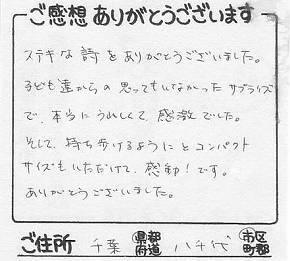 ご感想ありがとうございます
ステキな詩をありがとうございました。
子ども達からの思ってもいなかったサプライズ
で、本当にうれしくて、感激でした。
そして、持ち歩けるようにとコンパクト
サイズもいただけて、感動！です。
ありがとうございました。
ご住所 千葉 都道府県 八千代 市区町郡